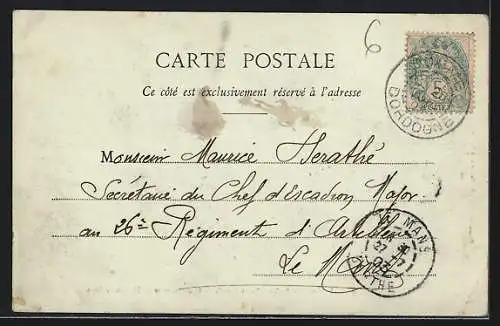 6
CARTE POSTALE
Ce côté est exclusivement réservé à l'adresse
DORDOGNE
Monsieur Maurice Herathé
Secrétaire du Chef d'Escadron Major
au 26e Régiment d'Artillerie
Le Mans
LE MANS
SARTHE